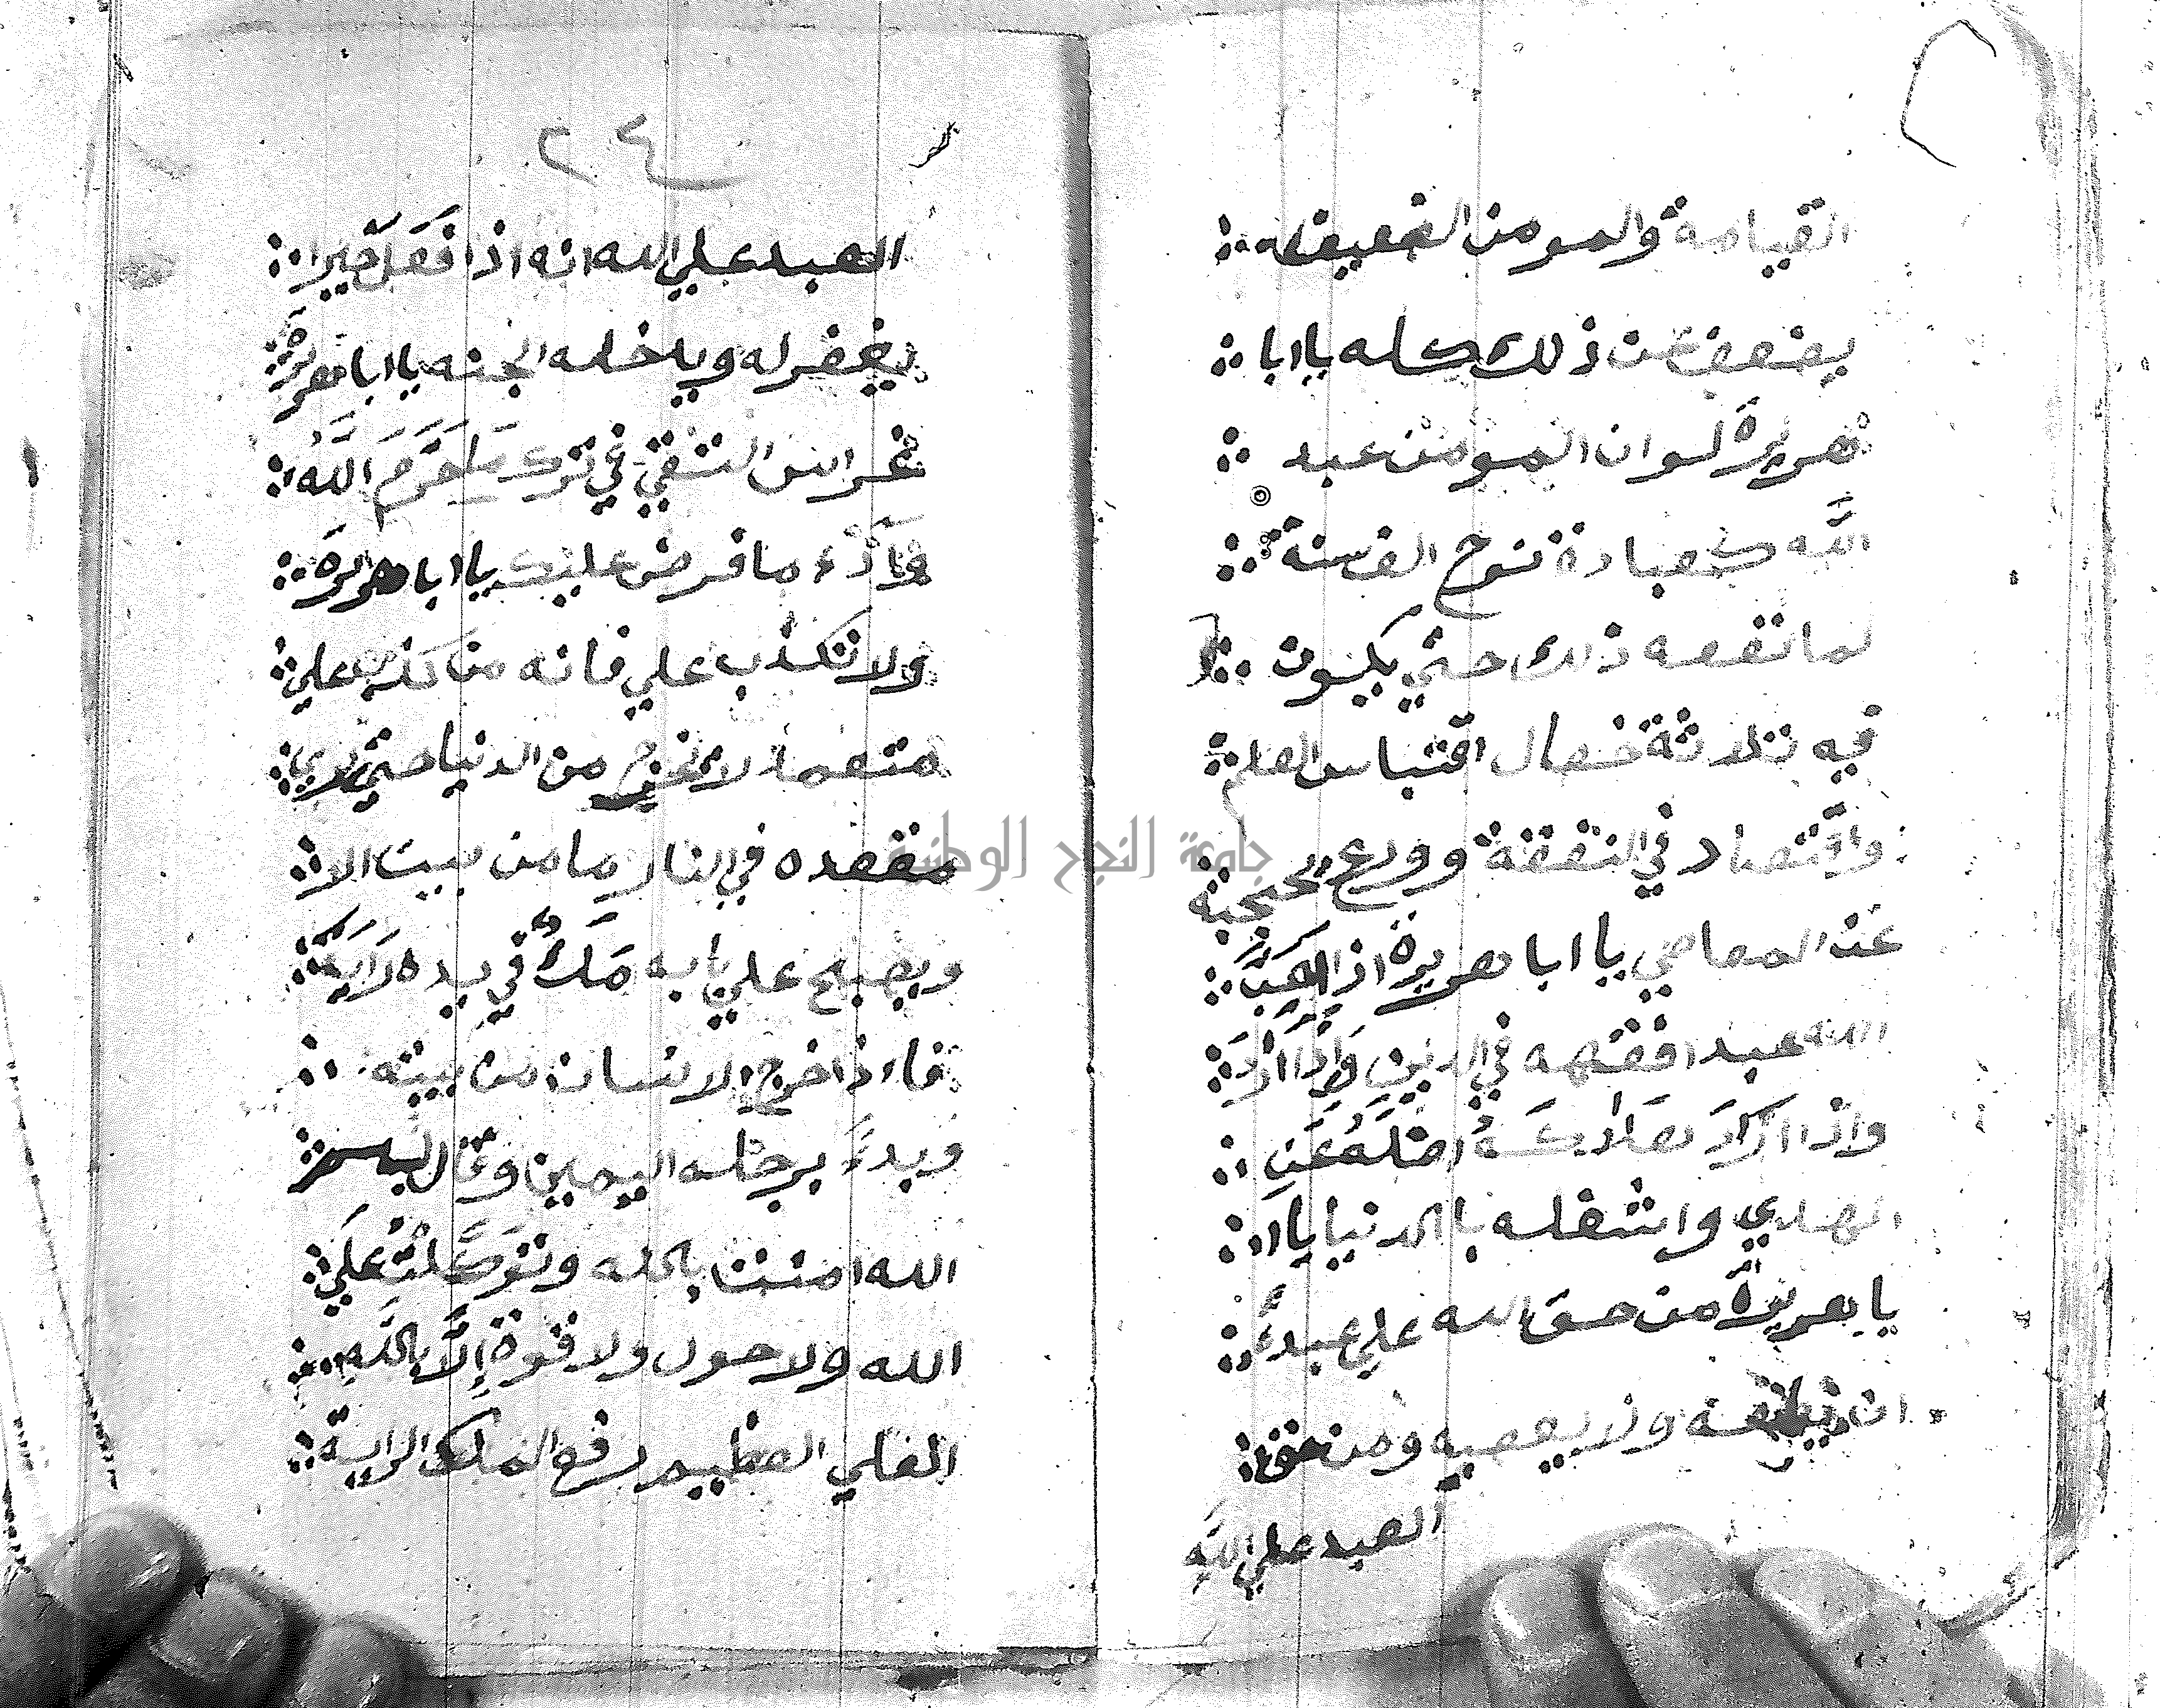 القيامة والمومن الضعيف
يضعف عن ذلك كله يا ابا
هريرة لو ان المومن عبد
الله كعبادة نوح الف سنة
لما نفعه ذلك حتي يكون
فيه ثلاثة خصال اقتباس العلم
واقتصاد في النفقة وورع يحجبه
عن المعاصي يا ابا هريرة اذا احب
الله عبدا فقهه في الدين واذا اراد
واذا اراد هلاكه اضله عن
الهدي واشغله بالدنيا يا ا
يا هريرة من حق الله علي عبده
ان يطيعه ولا يعصيه ومن حق
العبد علي الله
٢٤
العبد علي الله انه اذا فعل خيرا
يغفر له ويدخله الجنه يا ابا هريرة
غراس التقي في ترك ما حرم الله
وآدء ما فرض عليك يا ابا هريرة
ولا تكذب علي فانه من كذب علي
متعمدا لا يخرج من الدنيا حتي يري
مقعده في النار ما من بيت الا
ويصبح علي بابه ملك في يده راية
فاء اذا خرج الانسان من بيته
وبدء برجله اليمين وقال بسم
الله امنت بالله وتوكلت علي
الله ولا حول ولا قوة إلا بالله
العلي العظيم رفع الملك الراية
جامعة النجاح الوطنية